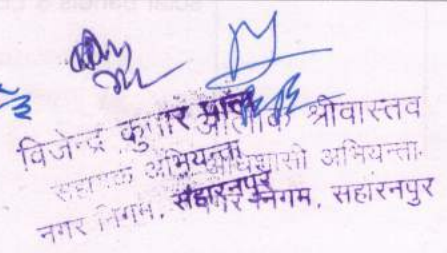 विजेन्द्र कुमार पाल आलोक श्रीवास्तव
सहायक अभियन्ता अधिशासी अभियन्ता.
नगर निगम, सहारनपुर नगर निगम, सहारनपुर